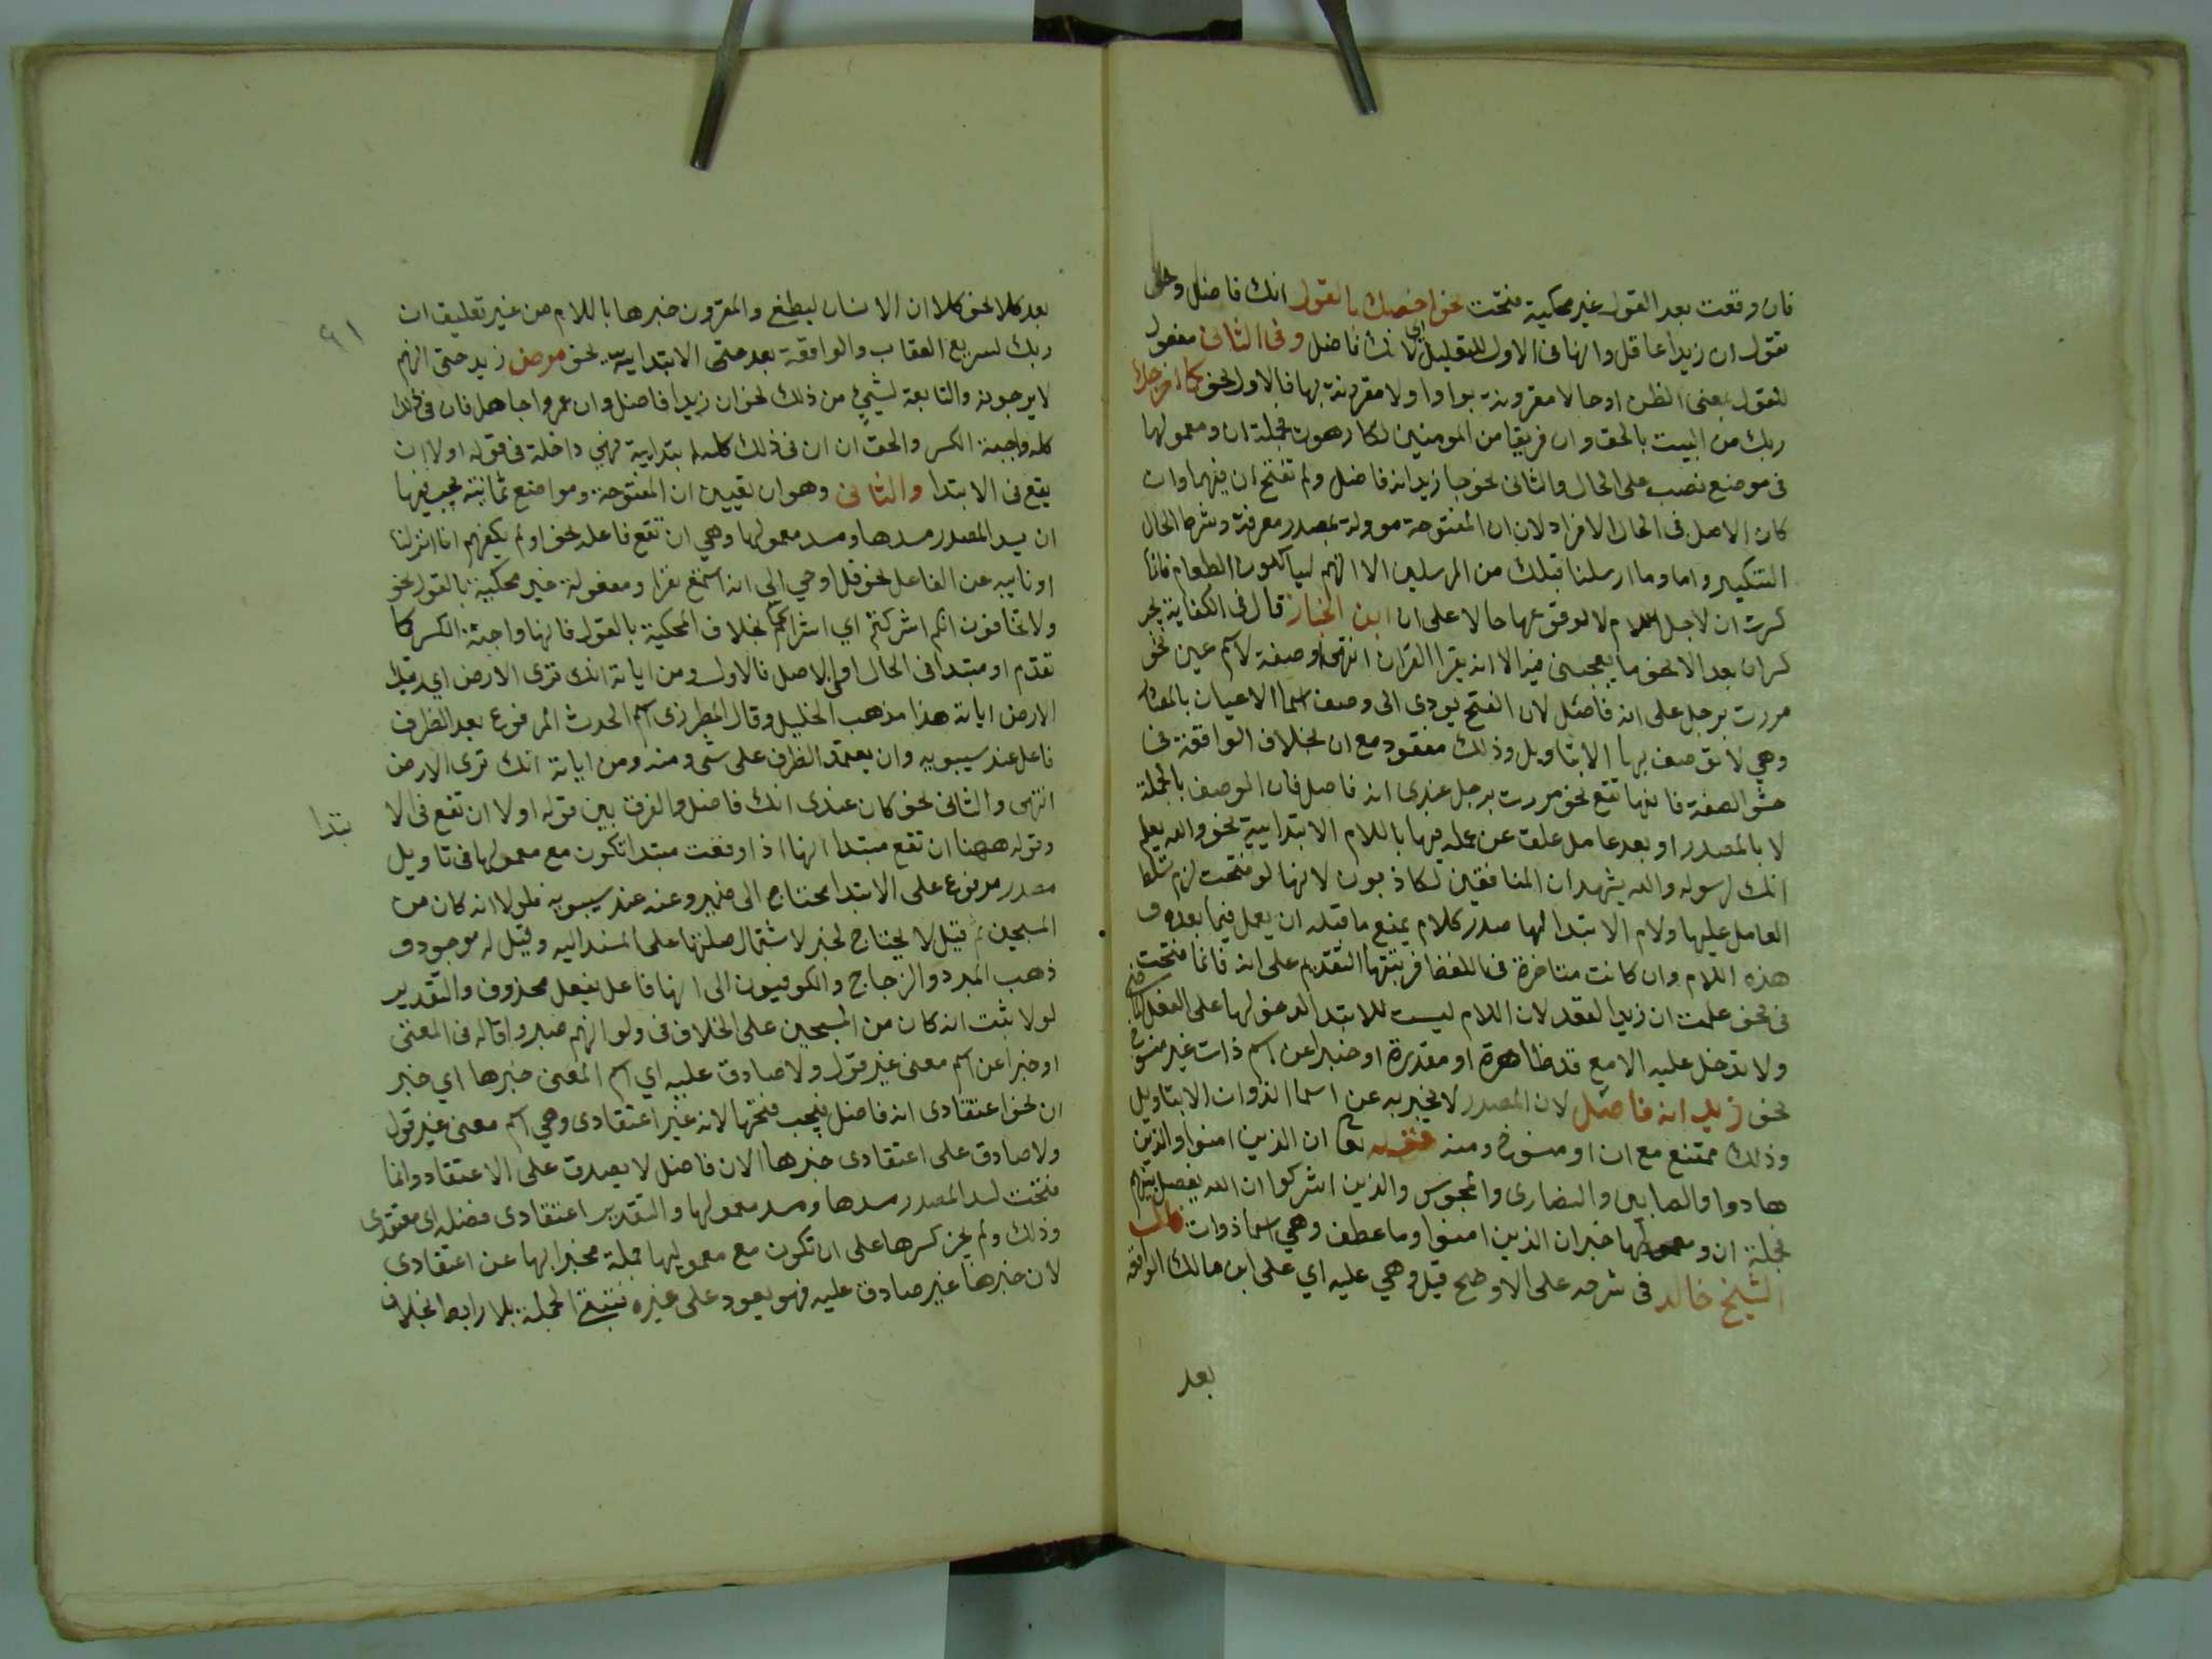 فان وقعت بعد القول غير محكية فتحت نحو اخصك بالقول انك فاضل و
تقول ان زيدا عاقل وانها فى الاول للتعليل اي لانك فاضل وفى الثانى مفعول
للقول بمعنى الظن او حالا مقرونة بواو اولا مقرونة بها فالاول نحو كما اخرجك
ربك من البيت بالحق وان فريقا من المومنين لكارهون فجملة ان ومعمولها
فى موضع نصب على الحال والثانى نحو جا زيد انه فاضل ولم تفتح ان فيهما وان
كان الاصل فى الحال الافراد لان ان المفتوحة موولة بمصدر معرفة وشرط الحال
التنكير واما وما ارسلنا قبلك من المرسلين الا انهم لياكلون الطعام فانما
كسرت ان لاجل اللام لا لوقوعها حالا على ان ابن الخباز قال فى الكفاية يجر
كسر ان بعد الا نحو ما يعجبنى فيه الا انه يقرا القران انتهى او صفة لاسم عين نحو
مررت برجل على انه فاضل لان الفتح يودى الى وصف اسما الاعيان بالمصادر
وهي لا توصف بها الا بتاويل وذلك مفقود مع ان بخلاف الواقعة فى
حشو الصفة فانها تفتح نحو مررت برجل عندى انه فاضل فان الوصف بالجملة
لا بالمصدر او بعد عامل علق عن عمله فيها باللام الابتدايية نحو والله يعلم
انك لرسوله والله يشهد ان المنافقين لكاذبون لانها لو فتحت لزم تسلط
العامل عليها ولام الابتدا لها صدر كلام يمنع ما قبله ان يعمل فيما بعده و
هذه اللام وان كانت متاخرة فى اللفظ فرتبتها التقديم على انه فانما فتحت
فى نحو علمت ان زيدا لقد لان اللام ليست للابتدا لدخولها على الفعل الماضى
ولا تدخل عليه الا مع قد ظاهرة او مقدرة او خبرا عن اسم ذات غير منسوخ
نحو زيد انه فاضل لان المصدر لا يخبر به عن اسما الذوات الا بتاويل
وذلك ممتنع مع ان او منسوخ ومنه قوله تع ان الذين امنوا والذين
هادوا والصابين والنصارى والمجوس والذين اشركوا ان الله يفصل بينهم
فجملة ان ومعمولها خبر ان الذين امنوا وما عطف وهي اسما ذوات قال
الشيخ خالد فى شرحه على الاوضح قيل وهي عليه اي على ابن مالك الواقعة
بعد
٩١
بعد كلا نحو كلا ان الانسان ليطغى والمقرون خبرها باللام من غير تعليق ان
ربك لسريع العقاب والواقعة بعد حتى الابتدايية نحو مرض زيد حتى انهم
لا يرجونه والتابعة لشيء من ذلك نحو ان زيدا فاضل وان عمروا جاهل فان فى ذلك
كله واجبة الكسر والحق ان ان فى ذلك كله ابتدايية فهي داخلة فى قوله اولا ان
يقع فى الابتدا والثانى وهو ان تعيين ان المفتوحة ومواضع ثمانية يجب فيها
ان يسد المصدر مسدها ومسد معمولها وهي ان تقع فاعله نحو اولم يكفهم انا انزلنا
او نايبه عن الفاعل نحو قل اوحي الى انه استمع نفر او مفعولة غير محكية بالقول نحو
ولا تخافون انكم اشركتم اي اشراككم بخلاف المحكية بالقول فانها واجبة الكسر كما
تقدم او مبتدا فى الحال او فى الاصل فالاول ومن اياته انك ترى الارض اي رويتك
الارض اياته هذا مذهب الخليل وقال المطرزى اسم الحدث المرفوع بعد الظرف
فاعل عند سيبويه وان يعتمد الظرف على شى ومنه ومن اياته انك ترى الارض
انتهى والثانى نحو كان عندى انك فاضل والفرق بين قوله اولا ان تقع فى الا
بتدا
وقوله ههنا ان تقع مبتدا انها اذا وقعت مبتدا تكون مع معمولها فى تاويل
مصدر مرفوع على الابتدا يحتاج الى خبر وعنه عند سيبويه فلولا انه كان من
المسبحين ثم قيل لا يحتاج لخبر لاشتمال صلتها على المسند اليه وقيل له موجود و
ذهب المبرد والزجاج والكوفيون الى انها فاعل بفعل محذوف والتقدير
لولا ثبت انه كان من المسبحين على الخلاف فى ولو انهم صبروا قاله فى المغنى
او خبرا عن اسم معنى غير قول ولا صادق عليه اي اسم المعنى خبرها اي خبر
ان نحو اعتقادى انه فاضل فيجب فتحها لانه غير اعتقادى وهي اسم معنى غير قول
ولا صادق على اعتقادى خبرها الان فاضل لا يصدق على الاعتقاد وانما
فتحت لسد المصدر مسدها ومسد معمولها والتقدير اعتقادى فضله اي معتقدى
وذلك ولم يجز كسرها على ان تكون مع معموليها جملة مخبرا بها عن اعتقادى
لان خبرها غير صادق عليه فهو يعود على غيره فتبقى الجملة بلا رابط بخلاف